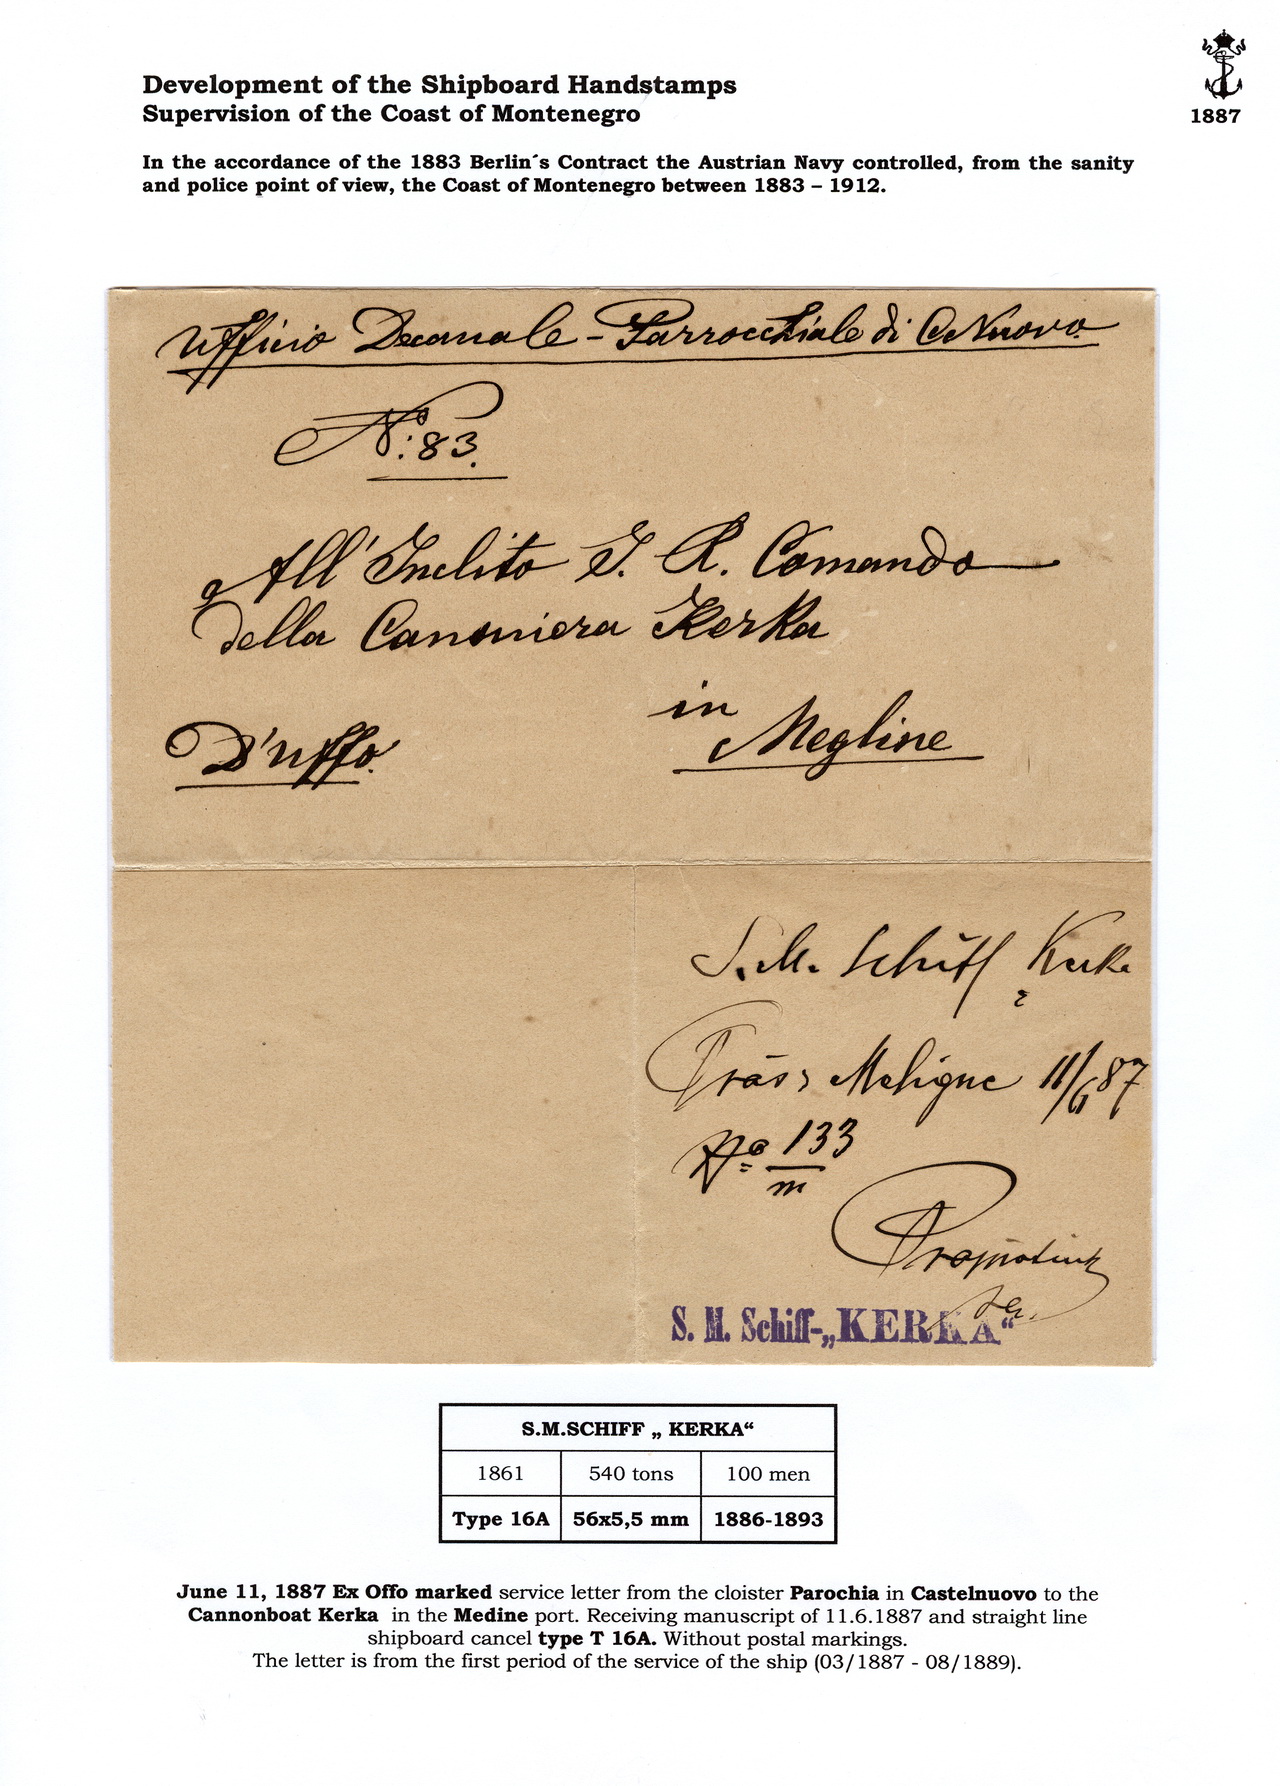 1887
Development of the Shipboard Handstamps
Supervision of the Coast of Montenegro
In the accordance of the 1883 Berlin´s Contract the Austrian Navy controlled, from the sanity
and police point of view, the Coast of Montenegro between 1883 – 1912.
Ufficio Decanale - Parrocchiale di CNuovo.
No: 83.
All' Inclito I. R. Comando
della Canoniera Kerka
in
D'Uffo.
Megline
S. M. Schiff Kerka
Präs: Meligne 11/6 87
No 133
m
S. M. Schiff-„KERKA“
S.M.SCHIFF „ KERKA“
1861 540 tons 100 men
Type 16A 56x5,5 mm 1886-1893
June 11, 1887 Ex Offo marked service letter from the cloister Parochia in Castelnuovo to the
Cannonboat Kerka in the Medine port. Receiving manuscript of 11.6.1887 and straight line
shipboard cancel type T 16A. Without postal markings.
The letter is from the first period of the service of the ship (03/1887 - 08/1889).